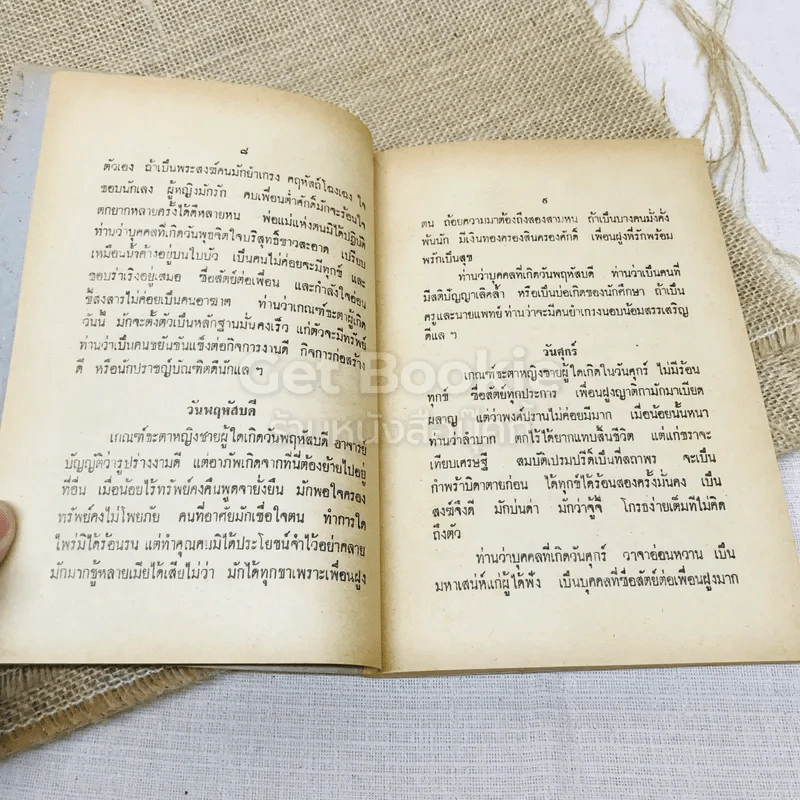 ๘
ตัวเอง ถ้าเป็นพระสงฆ์คนมักยำเกรง คฤหัสถ์โฉงเฉง ใจ
ชอบนักเลง ผู้หญิงมักรัก คบเพื่อนต่ำศักดิ์มักจะร้อนใจ
ตกยากหลายครั้งได้ดีหลายหน พ่อแม่แห่งตนมิได้ปฏิบัติ
ท่านว่าบุคคลที่เกิดวันพุธจิตใจบริสุทธิ์ขาวสะอาด เปรียบ
เหมือนน้ำค้างอยู่บนใบบัว เป็นคนไม่ค่อยจะมีทุกข์ และ
ชอบร่าเริงอยู่เสมอ ซื่อสัตย์ต่อเพื่อน และกำลังใจอ่อน
ขี้สงสารไม่ค่อยเป็นคนอาฆาต ท่านว่าเกณฑ์ชะตาผู้เกิด
วันนี้ มักจะตั้งตัวเป็นหลักฐานมั่นคงเร็ว แก่ตัวจะมีทรัพย์
ท่านว่าเป็นคนขยันขันแข็งต่อกิจการงานดี กิจการก่อสร้าง
ดี หรือนักปราชญ์บัณฑิตดีนักแล ฯ
วันพฤหัสบดี
เกณฑ์ชะตาหญิงชายผู้ใดเกิดวันพฤหัสบดี อาจารย์
บัญญัติว่ารูปร่างงามดี แต่อาภัพเกิดจากที่นี่ต้องย้ายไปอยู่
ที่อื่น เมื่อน้อยไร้ทรัพย์คงคืนพูดจายั่งยืน มักพอใจครอง
ทรัพย์คงไม่โพยภัย คนที่อาศัยมักเชื่อใจตน ทำการใด
ไพร่มิได้ร้อนรน แต่ทำคุณคนมิได้ประโยชน์จำไว้อย่าคลาย
มักมากชู้หลายเมียได้เสียไม่ว่า มักได้ทุกขาเพราะเพื่อนฝูง
๙
ตน ถ้อยความมาต้องถึงสองสามหน ถ้าเป็นบางคนมั่งคั่ง
พันนัก มีเงินทองครองสินครองศักดิ์ เพื่อนฝูงที่รักพร้อม
พรักเป็นสุข
ท่านว่าบุคคลที่เกิดวันพฤหัสบดี ท่านว่าเป็นคนที่
มีสติปัญญาเลิศล้ำ หรือเป็นบ่อเกิดของนักศึกษา ถ้าเป็น
ครูและนายแพทย์ ท่านว่าจะมีคนยำเกรงนอบน้อมสรรเสริญ
ดีแล ฯ
วันศุกร์
เกณฑ์ชะตาหญิงชายผู้ใดเกิดในวันศุกร์ ไม่มีร้อน
ทุกข์ ซื่อสัตย์ทุกประการ เพื่อนฝูงญาติกามักมาเบียด
ผลาญ แต่ว่าพงศ์ปรานไม่ค่อยมีมาก เมื่อน้อยนั้นหนา
ท่านว่าลำบาก ตกไร้ได้ยากแทบสิ้นชีวิต แต่แก่ชราจะ
เทียบเศรษฐี สมบัติเปรมปรีดิ์เป็นที่สถาพร จะเป็น
กำพร้าบิดาตายก่อน ได้ทุกข์ได้ร้อนสองครั้งมั่นคง เป็น
สงฆ์จึงดี มักบ่นด่า มักว่าจู้จี้ โกรธง่ายเต็มทีไม่คิด
ถึงตัว
ท่านว่าบุคคลที่เกิดวันศุกร์ วาจาอ่อนหวาน เป็น
มหาเสน่ห์แก่ผู้ได้ฟัง เป็นบุคคลที่ซื่อสัตย์ต่อเพื่อนฝูงมาก
Get Bookie
ร้านหนังสือเก็ทบุ๊คกี้